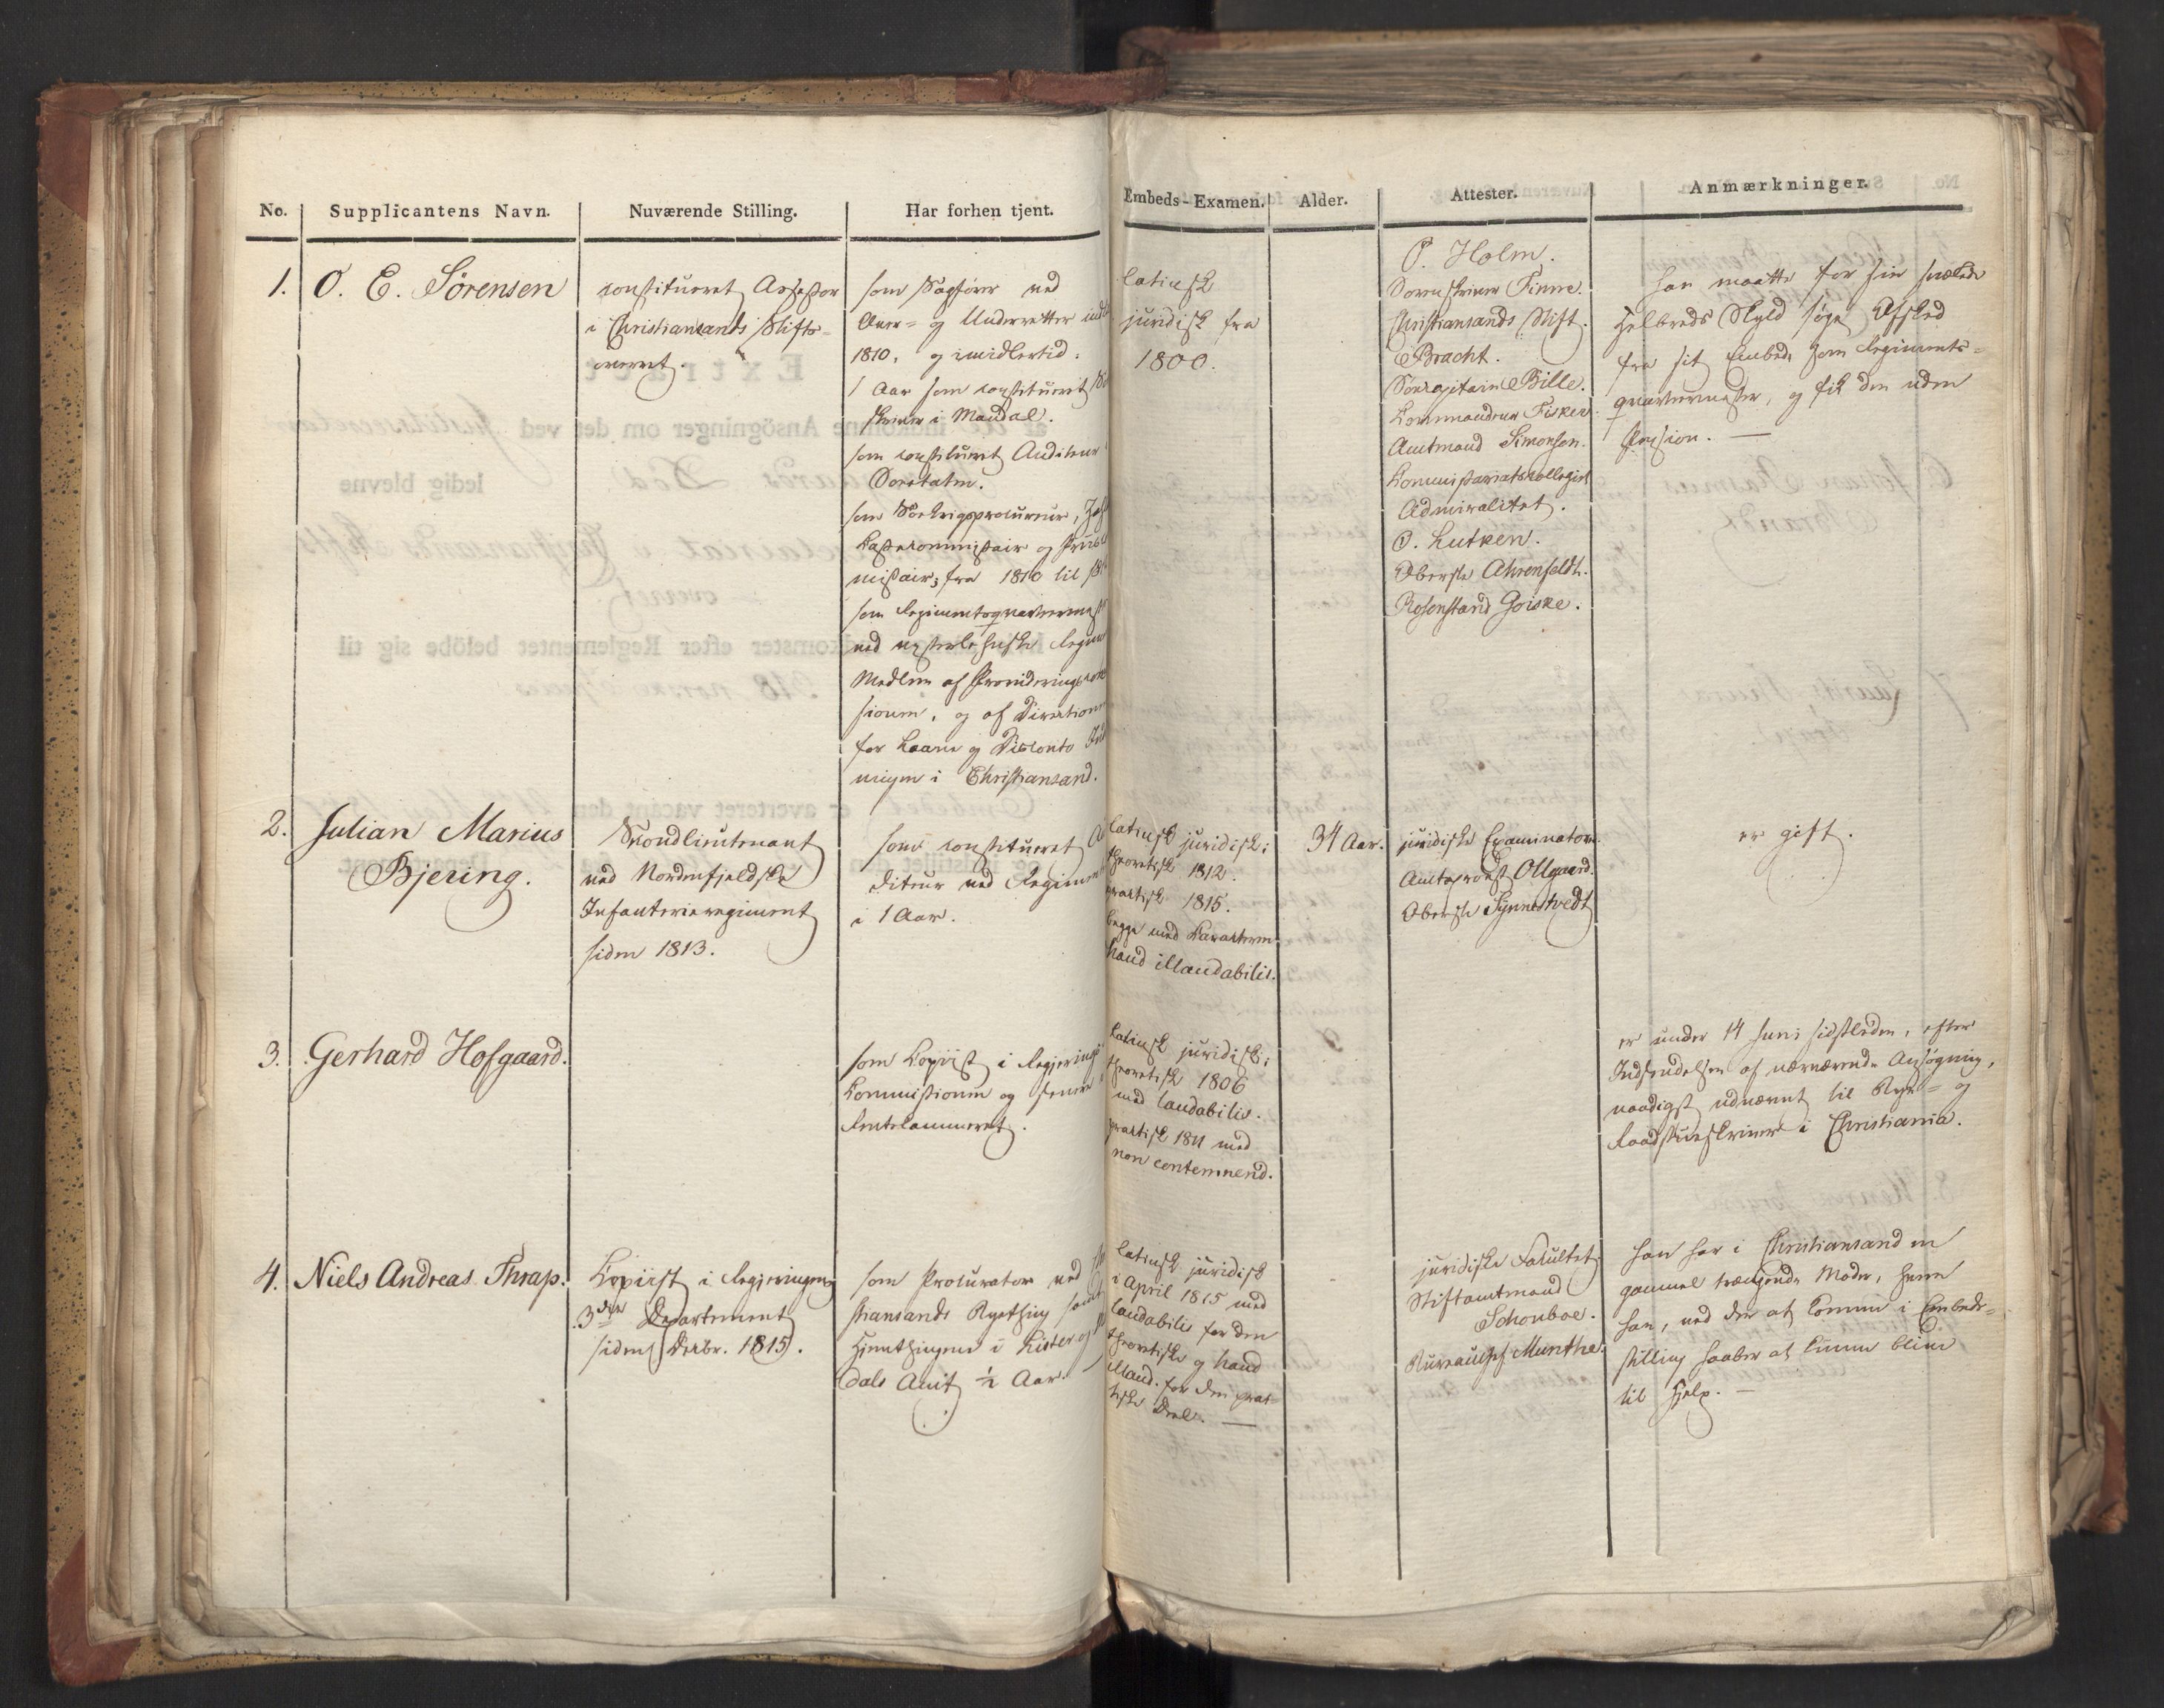 No.
Supplicantens Navn.
Nuværende Stilling.
Har forhen tjent.
Embeds-Examen.
Alder.
Attester.
Anmærkninger.
1.
O. E. Sörensen
constitueret Assessor
i Christiansands Stifts-
overret.
som Sagfører ved
Over- og Underretter
1810, og imidlertid
1 Aar som constitueret
skriver i Mandal.
som constitueret Auditeur
Søetaten.
som
og
fra 1810 til
som Regimentsqvartermest
ved vesterlehnske Regim
Medlem af Provideringscom
sionen, og af Directionen
for Laane og Disconto Ind
ningen i Christiansand.
latinsk
juridisk fra
1800.
P. Holm.
Sorenskriver Finne.
Christiansands Stift.
Bracht.
Søecapitain Bille.
Kommandeur Fisker.
Amtmand Simonsen.
Commissariatskollegiet
Admiralitet.
O. Lutken.
Oberste Ahrenfeldt.
Rosenstand Goiske.
han maatte for sin svækkede
Helbreds Skyld søge Afsked
fra sit Embede som Regiments-
qvartermester, og fik den uden
Pension. —
2.
Julian Marius
Bjering.
Secondlieutenant
ved Nordenfjeldske
Infanterieregiment
siden 1813.
som constitueret Au
diteur ved Regimen
i 1 Aar.
latinsk juridisk:
theoretisk 1812.
practisk 1815.
begge med Karacteren
haud illaudabilis.
34 Aar.
juridiske Examinatorer.
Amtsprovst Ollgaard.
Oberste Synnestvedt
er gift.
3.
Gerhard Hofgaard.
som Kopiist i Regjerings
Kommissionen og senere
Rentekammeret.
latinsk juridisk:
theoretisk 1806
med laudabilis.
practisk 1811 med
non contemnend.
er under 14 Juni sidstleden, efter
Indsendelsen af nærværende Ansøgning,
naadigst udnævnt til Bye- og
Raadstueskriver i Christiania.
4.
Niels Andreas Thrap.
Kopiist i Regjeringens
3die Departement
siden Decbr. 1815.
som Procurator ved
stiansands Byething samt
i Lister og
dals Amt ½ Aar.
latinsk juridisk
i April 1815 med
laudabilis for den
theoretiske og haud
illaud. for den prac-
tiske Deel. —
juridiske Facultet
Stiftamtmand
Schouboe.
Bureauchef Munthe.
han har i Christiansand en
gammel trængende Moder, hvem
han, ved der at komme i Embeds-
stilling haaber at kunne blive
til Hjelp. —